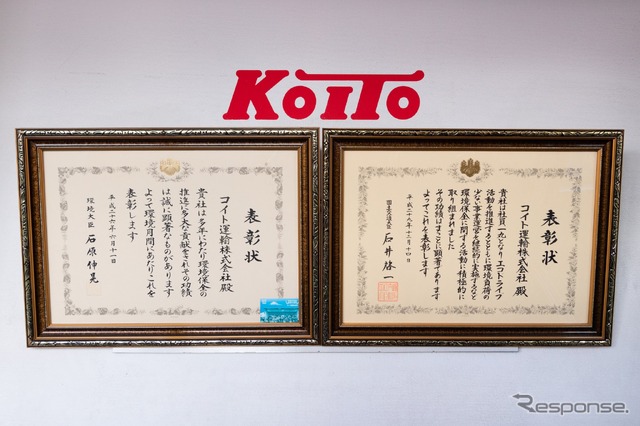 KoITo
表彰状
コイト運輸株式会社 殿
貴社は多年にわたり環境保全の
推進に多大な貢献をされその功績
は誠に顕著なものがあります
よって環境月間にあたりこれを
表彰します
平成二十六年六月十一日
環境大臣 石原伸晃
表彰状
コイト運輸株式会社 殿
貴社は社員一丸となりエコドライブ
活動を推進するとともに環境負荷の
少ない事業運営を継続的に実施するなど
環境保全に関する活動に積極的に
取り組まれました
その功績はまことに顕著であります
よってこれを表彰します
国土交通大臣 石井啓一
Response.